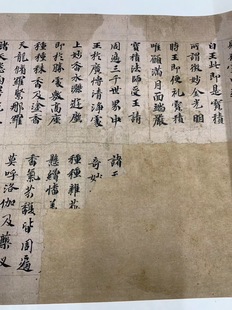 白王此即是寶積
所謂微妙金光明
時王即便礼寶積
唯願滿月面端嚴
寶積法師受王請
周遍三千世界中
諸
王於廣博清淨處
奇妙
上妙香水灑遊塵
種種雜花
即於勝處敷高座
懸繒幡盖
種種秣香及塗香
香氣芬馥皆周遍
天龍脩羅緊那羅
莫呼洛伽及藥叉
諸天